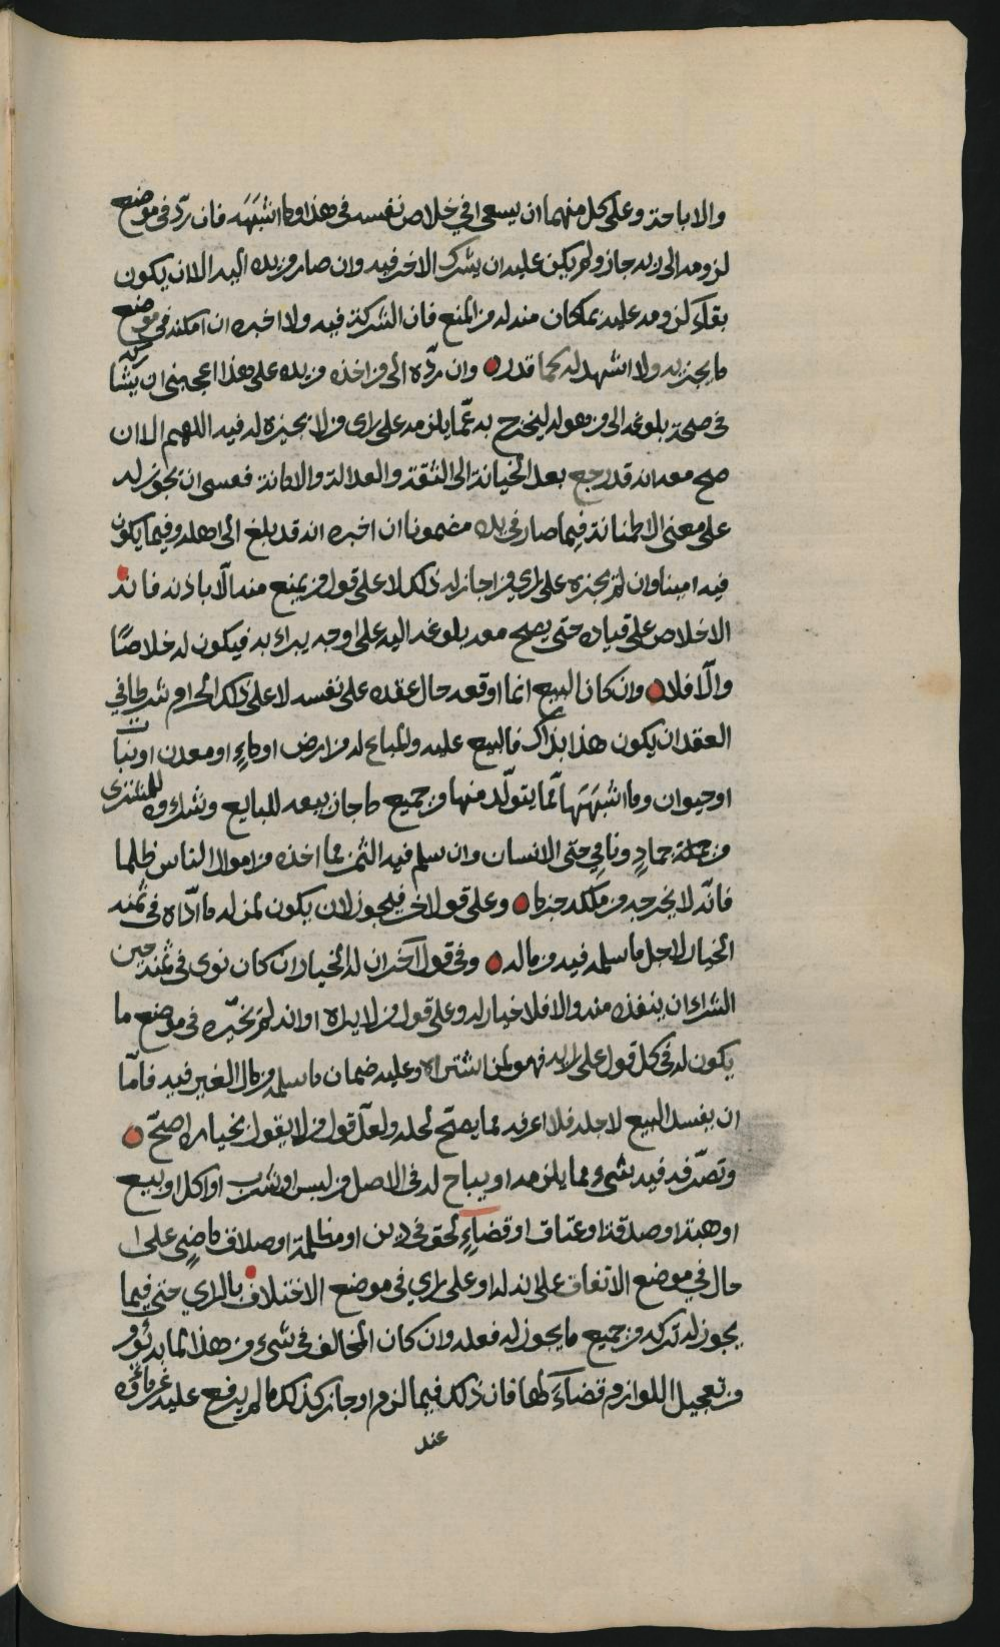 والاباحة وعلى كل منهما ان يسعى في خلاص نفسه في هذا وما اشبهه فان ردّه في موضع
لزومه الى يده جاز ولم يكن عليه ان يشرك الاخر فيه وان صار من يده اليه الا ان يكون
بقاء لزومه عليه بمكان منه له من المنع فان الشركة فيه ولا اخبره ان امكنه في موضع
ما يجزيه ولا اشهد له بما قدر وان ردّه الى من اخذه من يده على هذا اعجبني ان يشاركه
في صحة بلوغه الى من هو له ليخرج به عمّا يلزمه على راي من لا يجيزه له فيه اللهم الا ان
صح معه انه قد رجع بعد الخيانة الى الثقة والعدالة والامانة فعسى ان يجوز له
على معنى الاطمئنانة فيما صار في يده مضمونا ان اخبره انه قد بلغ الى اهله وفيما يكون
فيه امينا وان لم يجزه على راي من اجاز له ذلك لا على قول من يمنع منه الا باذنه فانه
الاخلاص على قياده حتى يصح معه بلوغه اليه على وجه يبراء به فيكون له خلاصًا
والّا فلا وان كان البيع انما اوقعه حال عقده على نفسه لا على ذلك الحرام شرطا في
العقد ان يكون هذا بذاك فالبيع عليه والمباع له من ارض او ماءٍ او معدن او نبات
او حيوان وما اشبهها مّما يتولّد منها من جميع ما جاز بيعه للبايع وشراوه للمشتري
من جملة جمادٍ ونامي حتى الانسان وان سلم فيه الثمن مما اخذه من اموال الناس ظلما
فانّه لا يخرجه من ملكه جزما وعلى قول اخر فيجوز لان يكون لمن له ما ادّاه في ثمنه
الخيار لاجل ما سلمه فيه من ماله وفي قول آخر ان له الخيار ان كان نوى في ثمنه حين
الشراء ان ينفذه منه والا فلا خيار له وعلى قول من لا يراه او انه لم يخيّره في موضع ما
يكون له في كل قول على رايه فهو لمن اشتراه وعليه ضمان ما سلمه من مال الغير فيه فامّا
ان يفسد البيع لاجله فلا اعرفه مما يصحّ لحله ولعلّ قول من لا يقول بخياره اصحّ
وتصرّفه فيه بشيء مما يلزمه او يباح له في الاصل من لبس او شرب او اكل او بيع
او هبة او صدقة او عتاق او قضاءٍ لحق في دين او مظلمة او صلاة ماضٍ على
حال في موضع الاتفاق على انه له او على راي في موضع الاختلاف بالراي حتى فيما
يجوز له تركه من جميع ما يجوز له فعله وان كان المخالف في شيء من هذا لما به يؤمر
من تعجيل اللوازم قضاءً لها فان ذلك فيما لزم او جاز كذلك ما لم يرفع عليه غرماؤه
عند